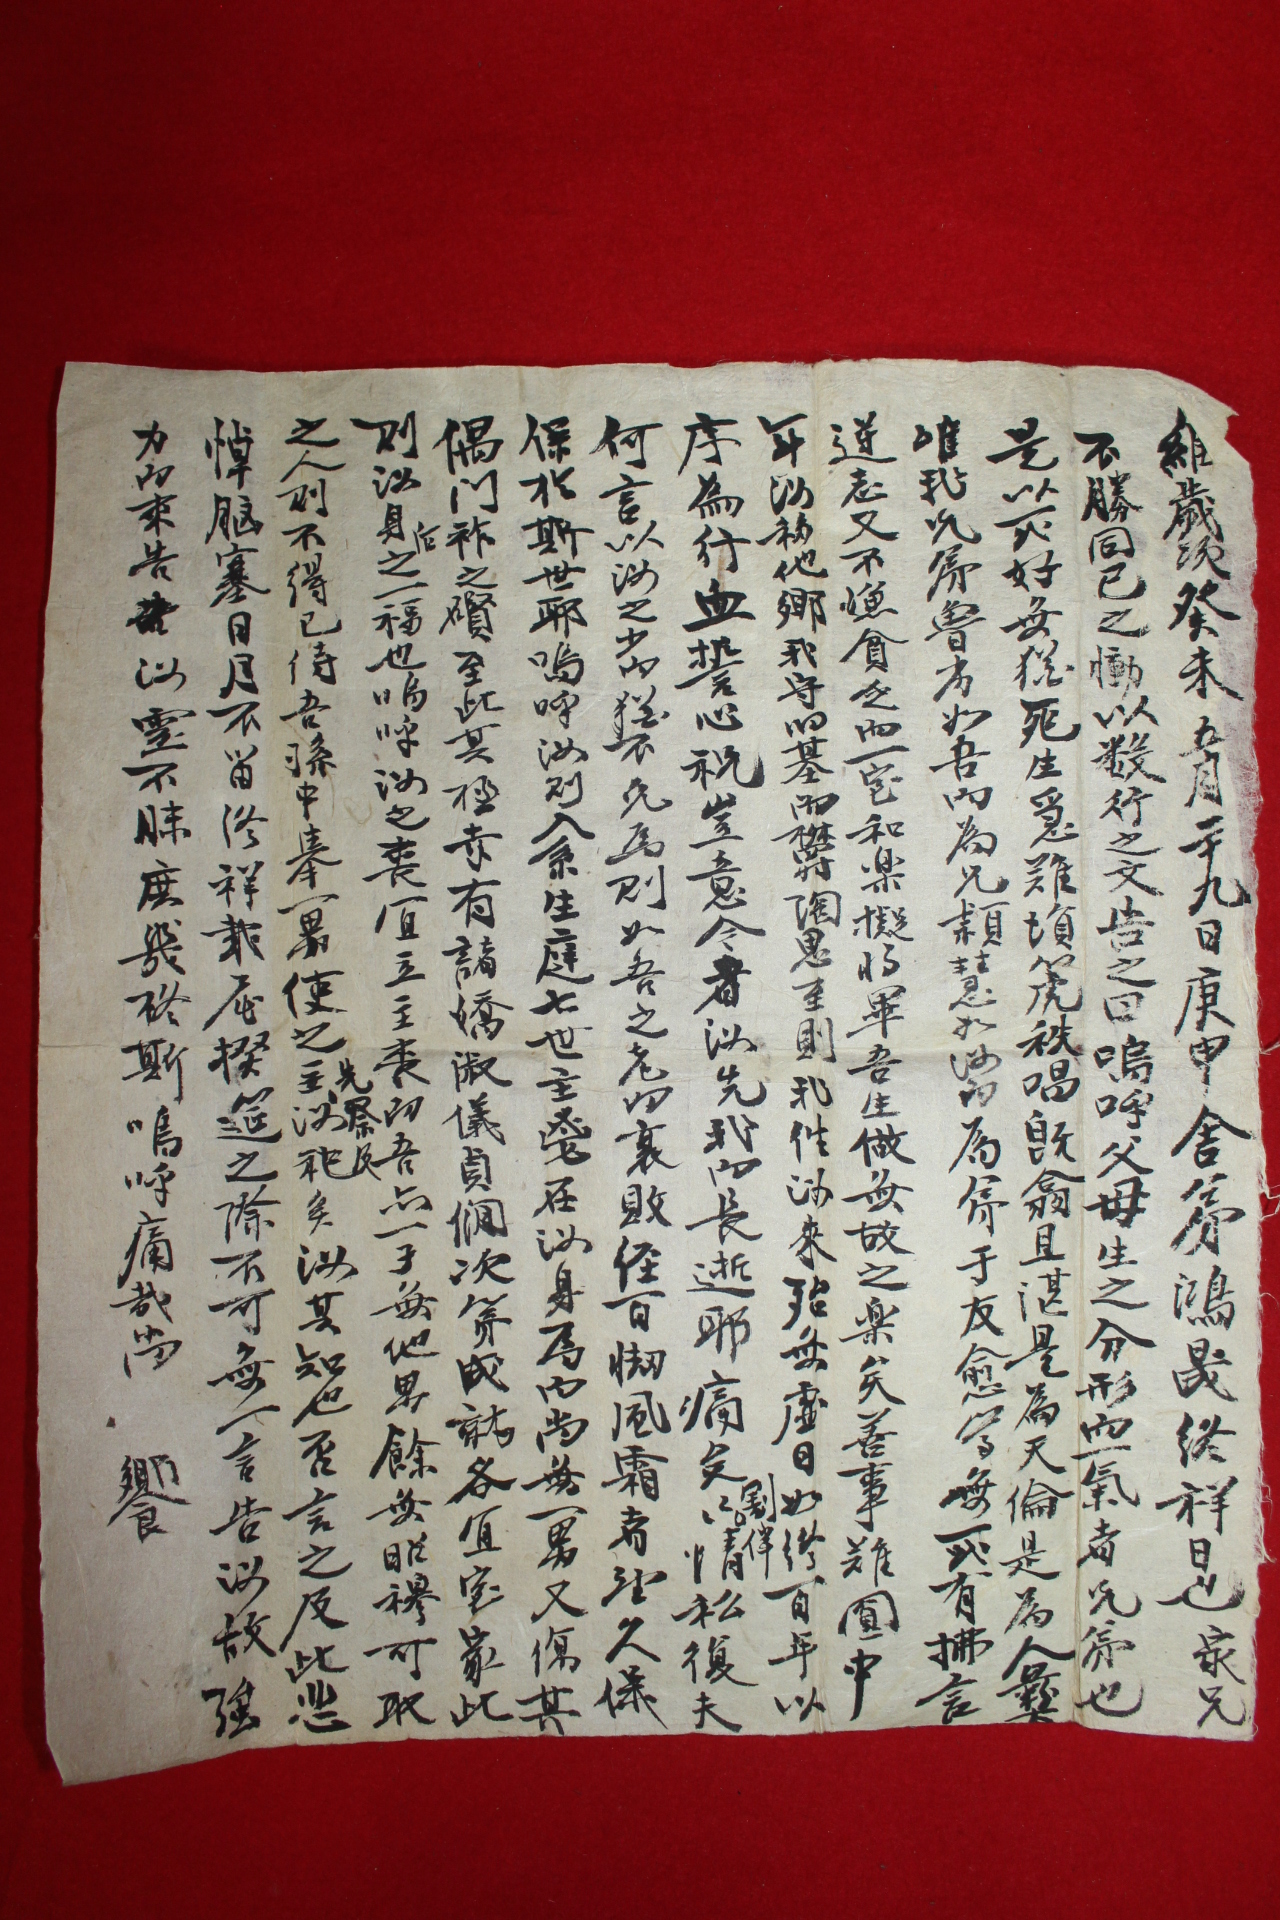 維歲次癸未五月二十九日庚申舍弟鴻晟終祥日也家兄
不勝同已之慟以數行之文告之曰嗚呼父母生之分形而一氣者兄弟也
是以死好無猶死生爰難塤箎秩唱旣翕且湛是爲天倫是爲人彛
唯我兄弟魯劣如吾而爲兄穎慧如汝而爲弟于友愈篤無或有拂言
逆志又不憚貧乏而一室和樂擬將畢吾生做無故之樂矣善事難圓中
年汝移他鄕我守旧基而欝陶思至則我往汝來殆無虛日如終百年以
序爲行血誓心祝豈意今者汝先我而長逝耶痛矣割半之情私復夫
何言以汝之少而猶不免焉則如吾之老而衰敗經百㥘風霜者能久保
保於斯世耶嗚呼汝則入系生庭七世主鬯在汝身焉而尚無一男又傷其
偶門祚之釁至此其極幸有諸嬌淑儀貞嫻次第成就各宜室家此
則汝身后之一福也嗚呼汝之喪宜立主喪而吾亦一子無他男餘無昭穆可取
之人則不得已待吾孫中擧一男使之主先祭及汝祀矣汝其知也否言之及此悲
悼胸塞日月不留終祥載届撤筵之際不可無一言告汝故强
力而來告汝靈不昧庶幾攸斯嗚呼痛哉尚
饗